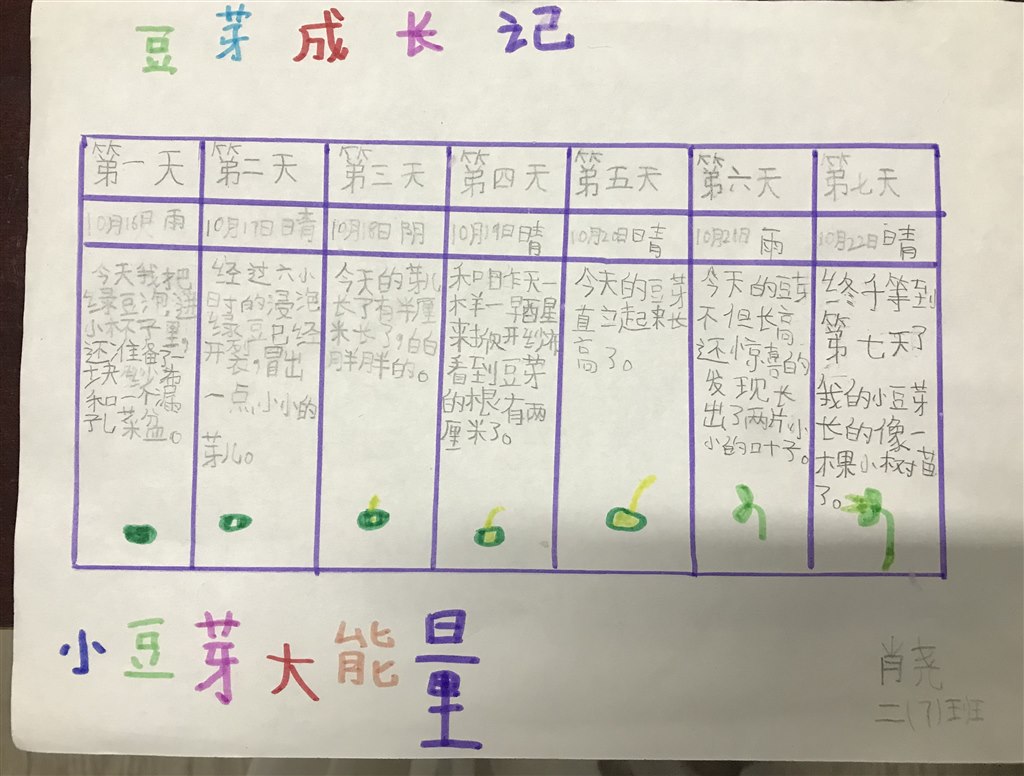 豆芽成长记
第一天 第二天 第三天 第四天 第五天 第六天 第七天
10月16日 雨 10月17日 晴 10月18日 阴 10月19日 晴 10月20日 晴 10月21日 雨 10月22日 晴
今天我把
绿豆泡进
小杯子里,
还准备了一
块纱布
和一个漏
子儿菜盆。
经过六小
时的浸泡
绿豆已经
开裂,冒出
一点小小的
芽儿。
今天的芽儿
长了有半厘
米长了,白白
胖胖的。
和昨天一
样一早醒
来掀开纱布
看到豆芽
的根有两
厘米了。
今天的豆芽
直立起来长
高了。
今天的豆芽
不但长高
还惊喜的
发现长
出了两片小
小的叶子。
终于等到
第七天了
我的小豆芽
长的像一
棵小树苗
了。
小豆芽大能量
肖尧
二(7)班